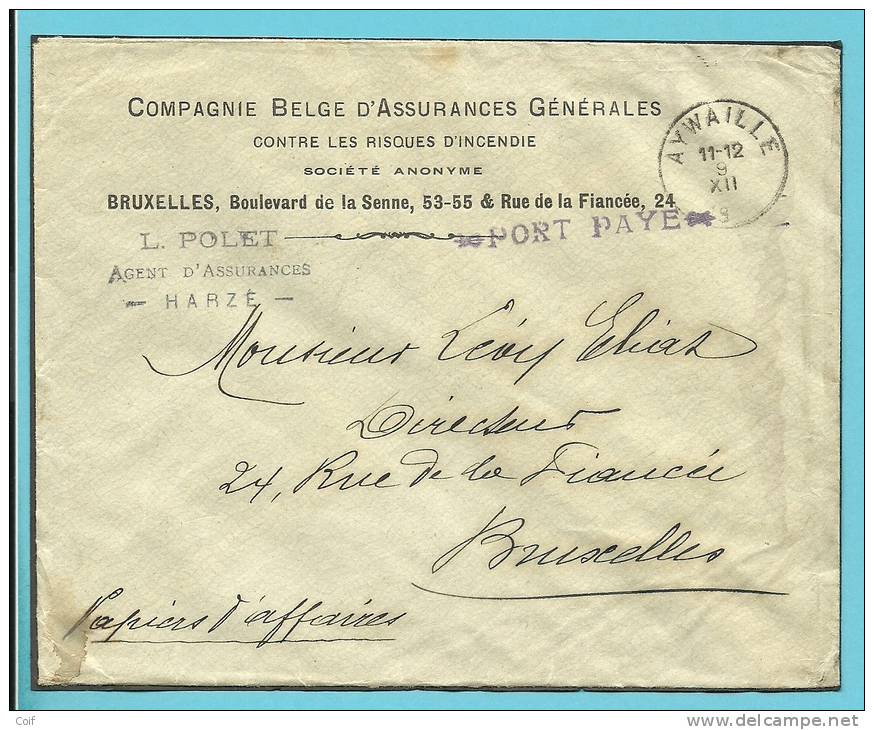 COMPAGNIE BELGE D'ASSURANCES GÉNÉRALES
CONTRE LES RISQUES D'INCENDIE
SOCIÉTÉ ANONYME
BRUXELLES, Boulevard de la Senne, 53-55 & Rue de la Fiancée, 24
AYWAILLE
11-12
9
XII
8
PORT PAYE
L. POLET
AGENT D'ASSURANCES
- HARZÉ -
Monsieur Lévy Eliat
Directeur
24, Rue de la Fiancée
Bruxelles
Papiers d'affaires
Coif
www.delcampe.net